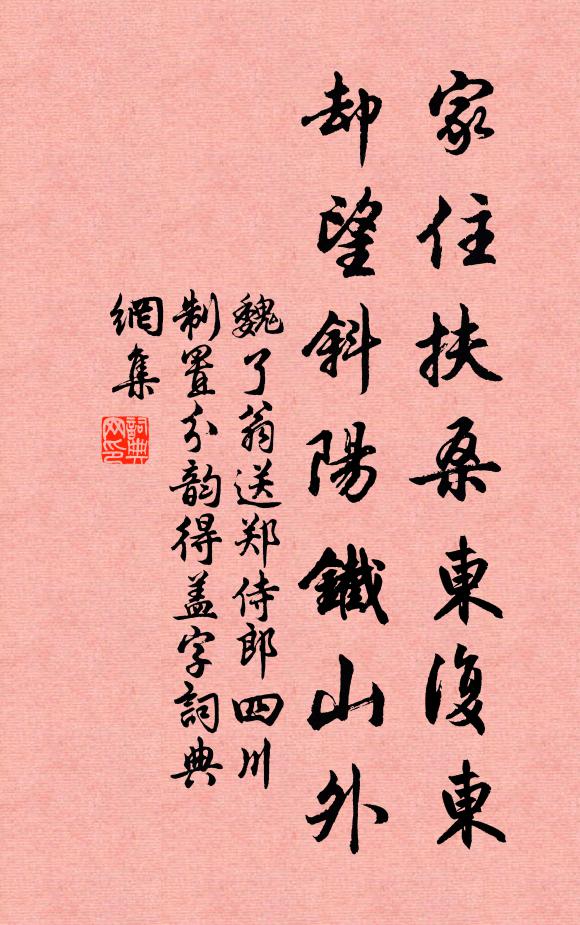 家住扶桑東復東
却望斜陽鐵山外
魏了翁送郑侍郎四川
制置分韵得盖字詞典
網集
詞典
网印